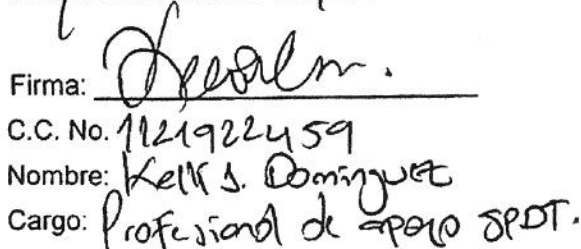 Firma:
C.C. No. 1121922459
Nombre: Kelly J. Dominguez
Cargo: Profesional de apoyo SPDT.